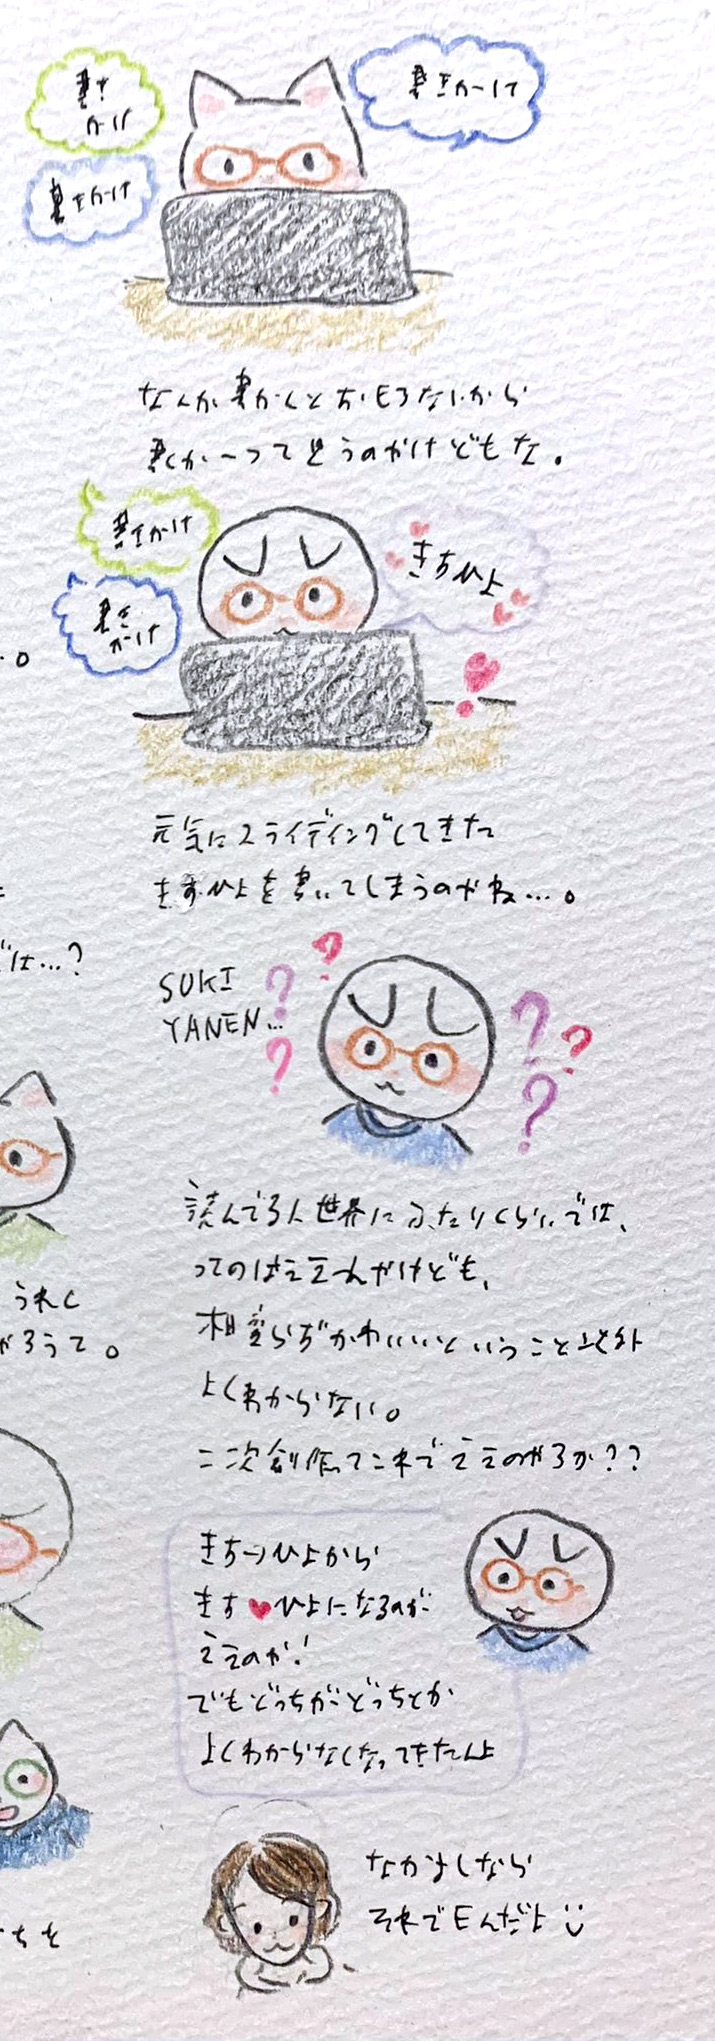 書き
かけ
書きかけて
書きかけ
なんか書かんとおもろないから
書くか〜って思うのやけどもな。
書きかけ
きすひよ
書き
かけ
元気にスライディングしてきた
きすひよを書いてしまうのやね…。
…。
ぱは…?
SUKI
YANEN…
? ? ?
? ? ?
読んでる人世界にふたりくらいでは、
ってのはええんやけども、
うれし
がろうて。
相変らずかわいいということ以外
よくわからない。
二次創作ってこれでええのやろか??
きす→ひよから
きす♥ひよになるのが
ええのか!
でもどっちがどっちとか
よくわからなくなってきたんよ
なかよしなら
それでEんだよ
ちを